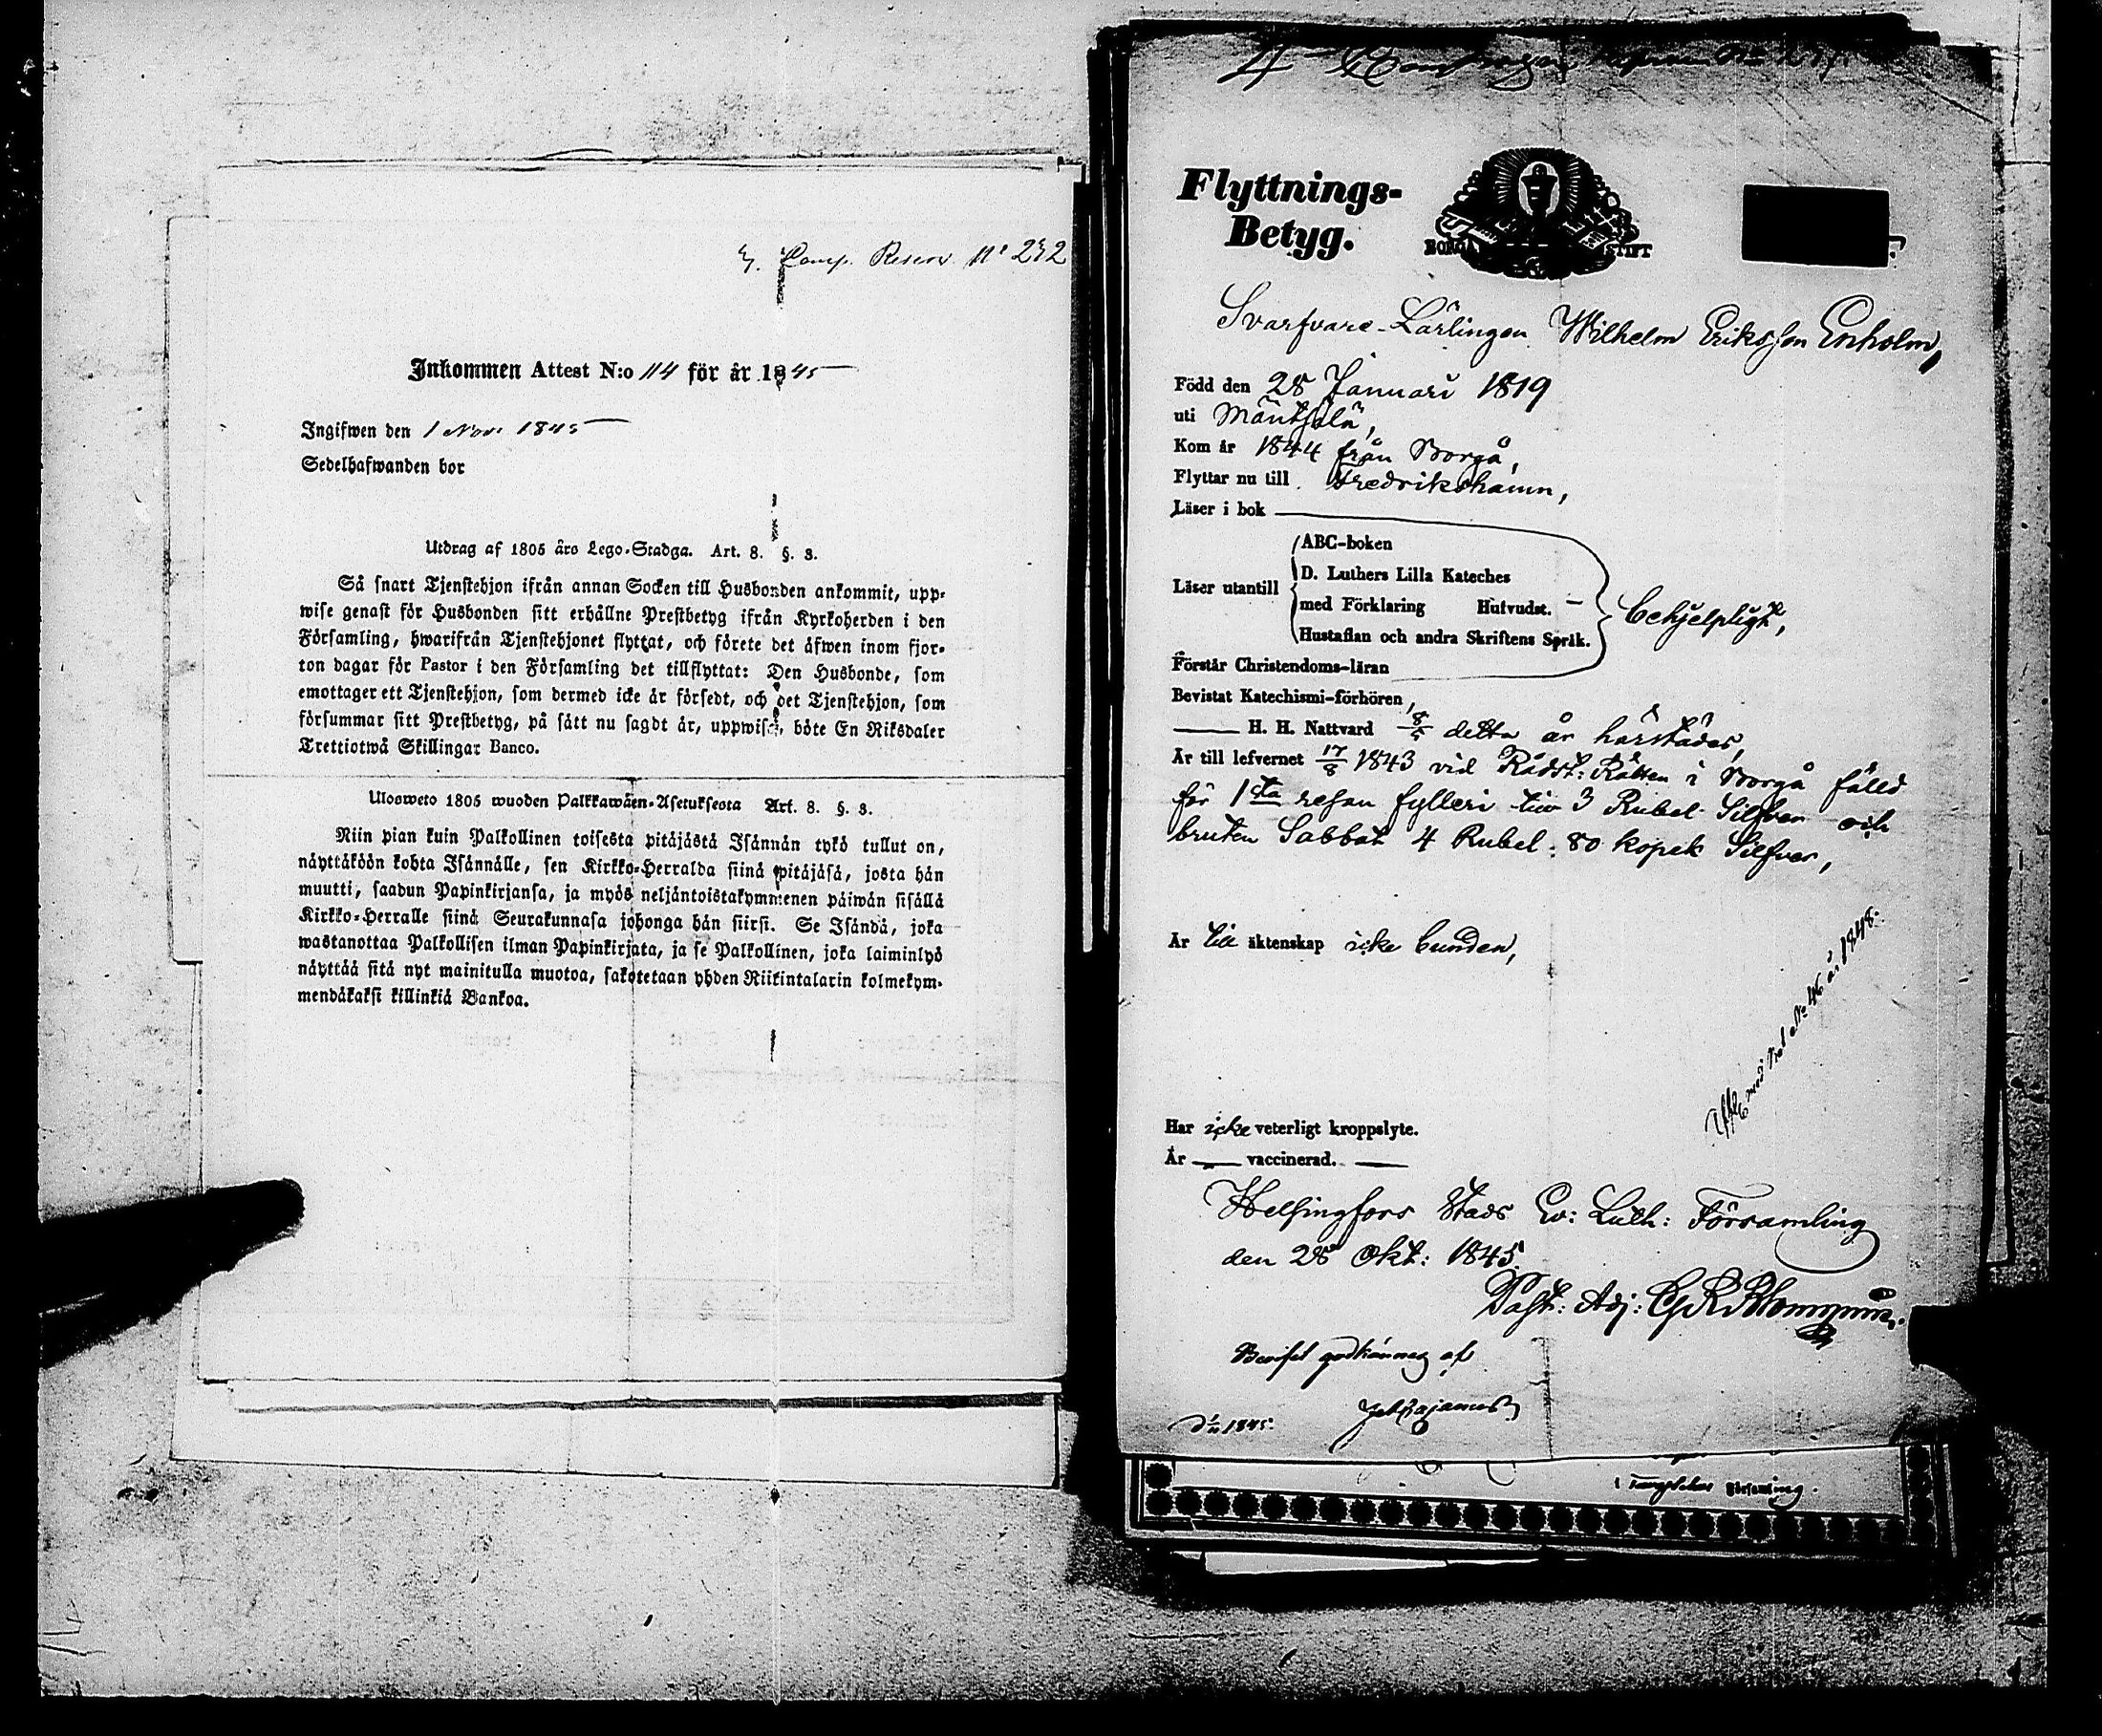 Comp. Reserv. No 232
Inkommen Attest N:o 114 för år 1845
Ingifwen den 1 Nov. 1845
Sedelhafwanden bor
Utdrag af 1805 års Lego-Stadga. Art. 8. §. 3.
Så snart Tjenstehjon ifrån annan Socken till Husbonden ankommit, upp-
wise genast för Husbonden sitt erhållne Prestbetyg ifrån Kyrkoherden i den
Församling, hwarifrån Tjenstehjonet flyttat, och förete det äfwen inom fjor-
ton dagar för Pastor i den Församling det tillflyttat: Den Husbonde, som
emottager ett Tjenstehjon, som dermed icke är försedt, och det Tjenstehjon, som
försummar sitt Prestbetyg, på sätt nu sagdt är, uppwisa, böte En Riksdaler
Trettiotwå Skillingar Banco.
Ulosweto 1805 wuoden Palkkawäen-Asetuksesta Art. 8. §. 3.
Niin pian kuin Palkollinen toisesta pitäjästä Isännän tykö tullut on,
näyttäköön kohta Isännälle, sen Kirkko-Herralda siinä pitäjäsä, josta hän
muutti, saadun Papinkirjansa, ja myös neljäntoistakymmenen päiwän sisällä
Kirkko-Herralle siinä Seurakunnasa johonga hän siirsi. Se Isändä, joka
wastanottaa Palkollisen ilman Papinkirjata, ja se Palkollinen, joka laiminlyö
näyttää sitä nyt mainitulla muotoa, sakotetaan yhden Riikintalarin kolmekym-
mendäkaksi killinkiä Bankoa.
Flyttnings-
Betyg.
BORGÅ STIFT
Svarfvare-Lärlingen Wilhelm Eriksson Enholm,
Född den 28 Januari 1819
uti Mäntsälä,
Kom år 1844 från Borgå,
Flyttar nu till Fredrikshamn,
Läser i bok
ABC-boken
D. Luthers Lilla Kateches
Läser utantill
med Förklaring Hufvudst. –
Behjelpligt,
Hustaflan och andra Skriftens Språk.
Förstår Christendoms-läran
Bevistat Katechismi-förhören,
H. H. Nattvard 8/5 detta år härstädes,
Är till lefvernet 17/8 1843 vid Rådst: Rätten i Borgå fälld
för 1sta resan fylleri till 3 Rubel Silfver och
bruten Sabbat 4 Rubel: 80 kopek Silfver,
Är till äktenskap icke bunden,
med No 46 år 1848.
Har icke veterligt kroppslyte.
Är — vaccinerad. —
Helsingfors Stads Ev: Luth: Församling
den 28 Okt: 1845.
Past: Adj:
Beviset godkännes af
1845.
Församling.